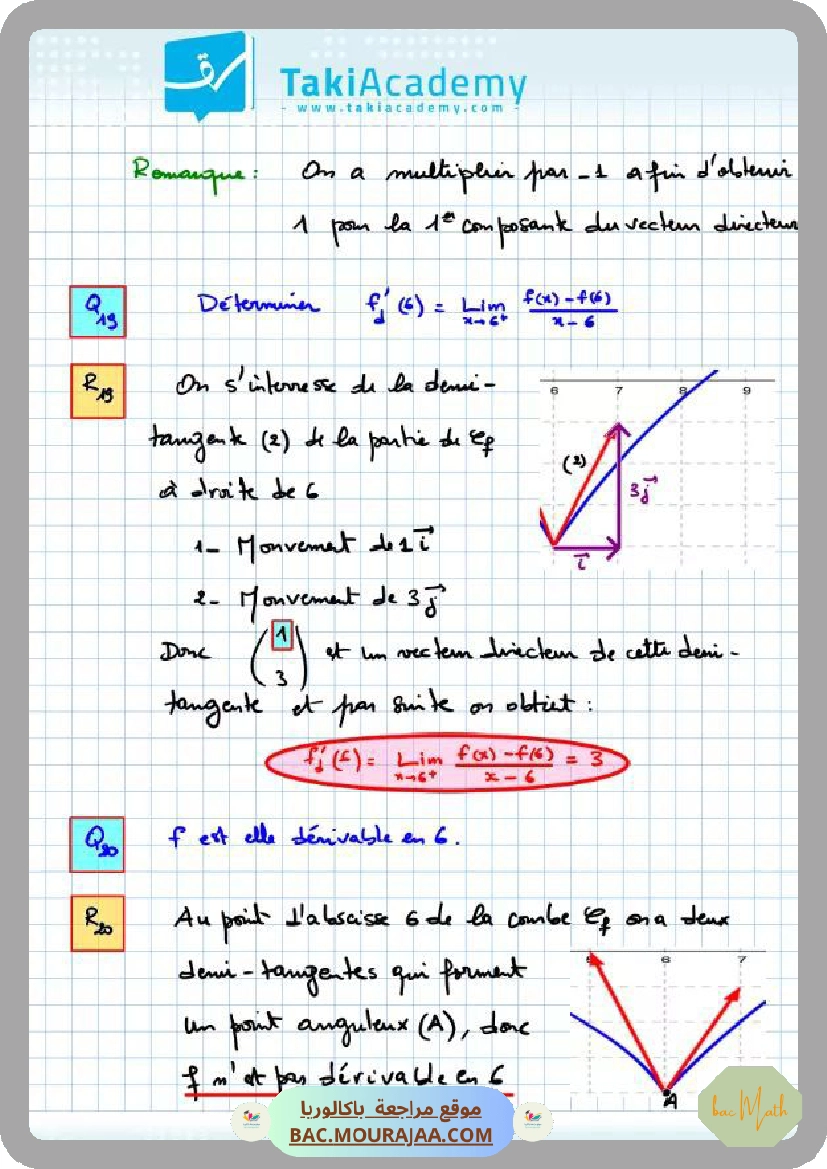 TakiAcademy
- www.takiacademy.com -
Remarque : On a multiplier par -1 afin d'obtenir
1 pour la 1ère composante du vecteur directeur
Q19 Déterminer f'd (6) = Lim x→6+ f(x) - f(6) / x - 6
R19 On s'interresse de la demi-
tangente (2) de la partie de Cf
à droite de 6
1- Mouvement de 1 i⃗
2- Mouvement de 3 j⃗
6 7 8 9
(2)
3j⃗
i⃗
Donc (1 3) est un vecteur directeur de cette demi-
tangente et par suite on obtiet :
f'd (6) = Lim x→6+ f(x) - f(6) / x - 6 = 3
Q20 f est elle dérivable en 6.
R20 Au point d'abscisse 6 de la courbe Cf on a deux
demi-tangentes qui forment
un point anguleux (A), donc
f n'est pas dérivable en 6
5 6 7
A
موقع مراجعة باكالوريا
BAC.MOURAJAA.COM
bac Math